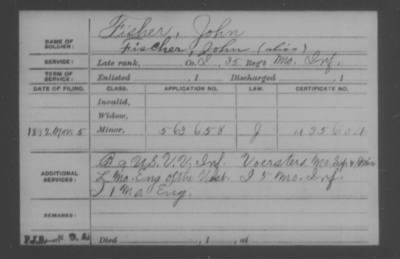 Fisher, John
NAME OF SOLDIER: Fischer, John (alias)
SERVICE: Late rank, Co. I, 35 Reg't Mo. Inf.
TERM OF SERVICE: Enlisted , 1 Discharged , 1
DATE OF FILING. CLASS. APPLICATION NO. LAW. CERTIFICATE NO.
Invalid,
Widow,
1892 Nov. 5 Minor, 563658 J
ADDITIONAL SERVICES: U.S.V.V. Inf.
L Mo. Eng of the West. I 5 Mo. Inf.
I 1 Mo Eng.
REMARKS:
Died , 1 , at